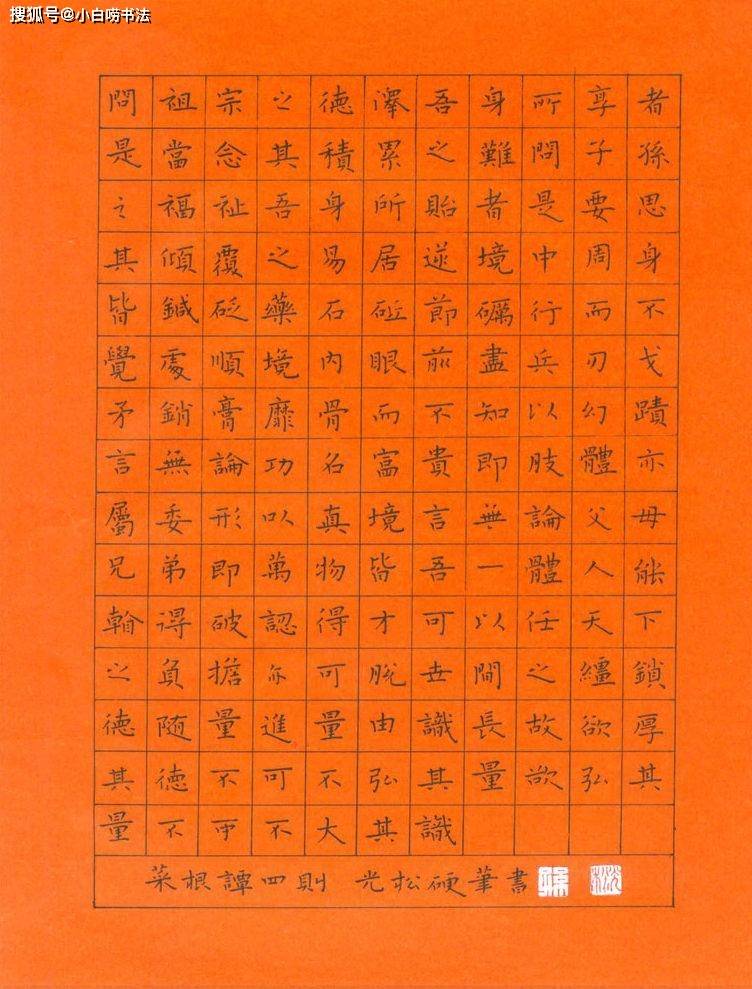 搜狐号@小白唠书法
問祖宗之德澤吾身所享者
是當念其積累之難問子孫
之福祉吾身所貽者是要思
其傾覆之易居逆境中周身
皆鍼砭藥石砥節礪行而不
覺處順境內眼前盡兵刃戈
矛銷膏靡骨而不知以幻蹟
言無論功名富貴即肢體亦
屬委形以真境言無論父母
兄弟即萬物皆吾一體人能
翰得破認得才可以任天下
之負擔亦可脫世間之繮鎖
德随量進量由識長故欲厚
其德不可不弘其量欲弘其
量不可不大其識
菜根譚四則 光松硬筆書